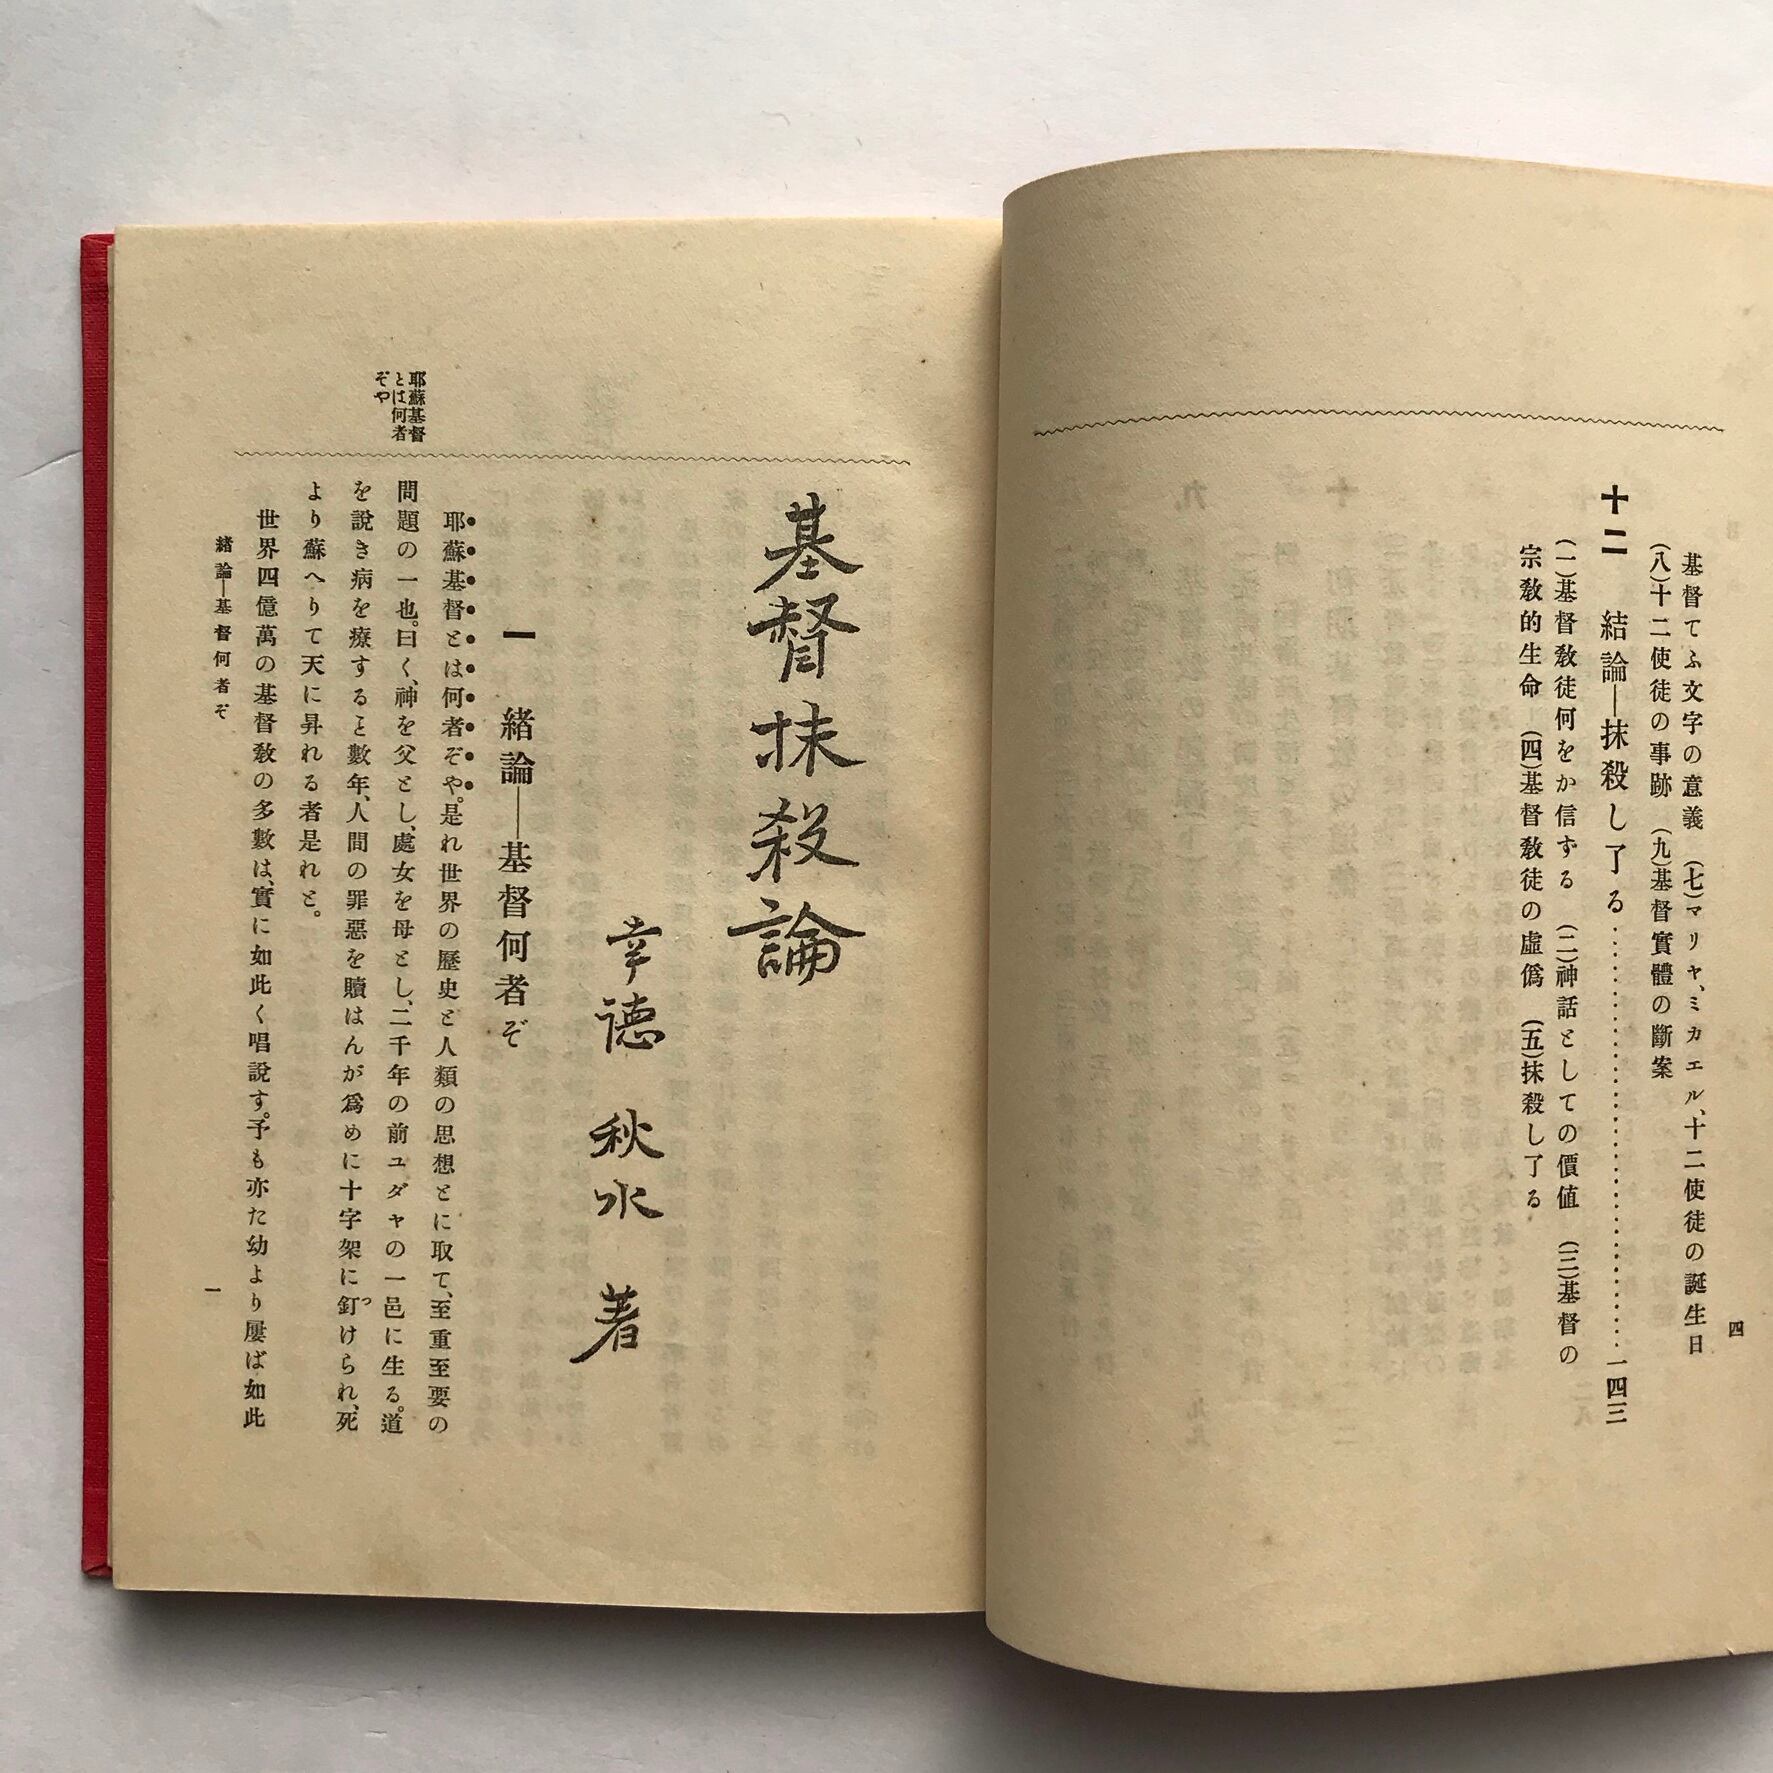 四
基督てふ文字の意義　(七)マリヤ、ミカエル、十二使徒の誕生日
(八)十二使徒の事跡　(九)基督實體の斷案
十二　結論―抹殺し了る……………………一四三
(一)基督敎徒何をか信ずる　(二)神話としての價値　(三)基督の
宗敎的生命　(四)基督敎徒の虛僞　(五)抹殺し了る
基督抹殺論
幸德秋水著
一　緒論―基督何者ぞ
耶蘇基督
とは何者
ぞや
耶蘇基督とは何者ぞや。是れ世界の歷史と人類の思想とに取て、至重至要の
問題の一也。曰く、神を父とし、處女を母とし、二千年の前ユダヤの一邑に生る。道
を說き病を療すること數年、人間の罪惡を贖はんが爲めに十字架に釘つけられ、死
より蘇へりて天に昇れる者是れと。
世界四億萬の基督敎の多數は、實に如此く唱說す。予も亦た幼より屢ば如此
緖論―基督何者ぞ
一